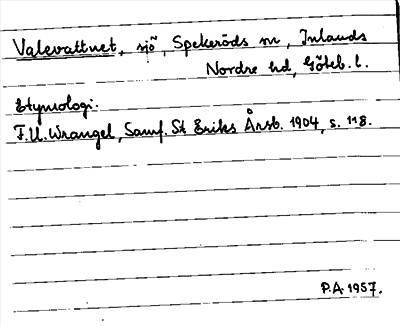 Valevattnet, sjö, Spekeröds sn, Inlands
Nordre hd, Göteb. l.
Etymologi:
F.U. Wrangel, Samf. St Eriks Årsb. 1904, s. 118.
P.A. 1957.